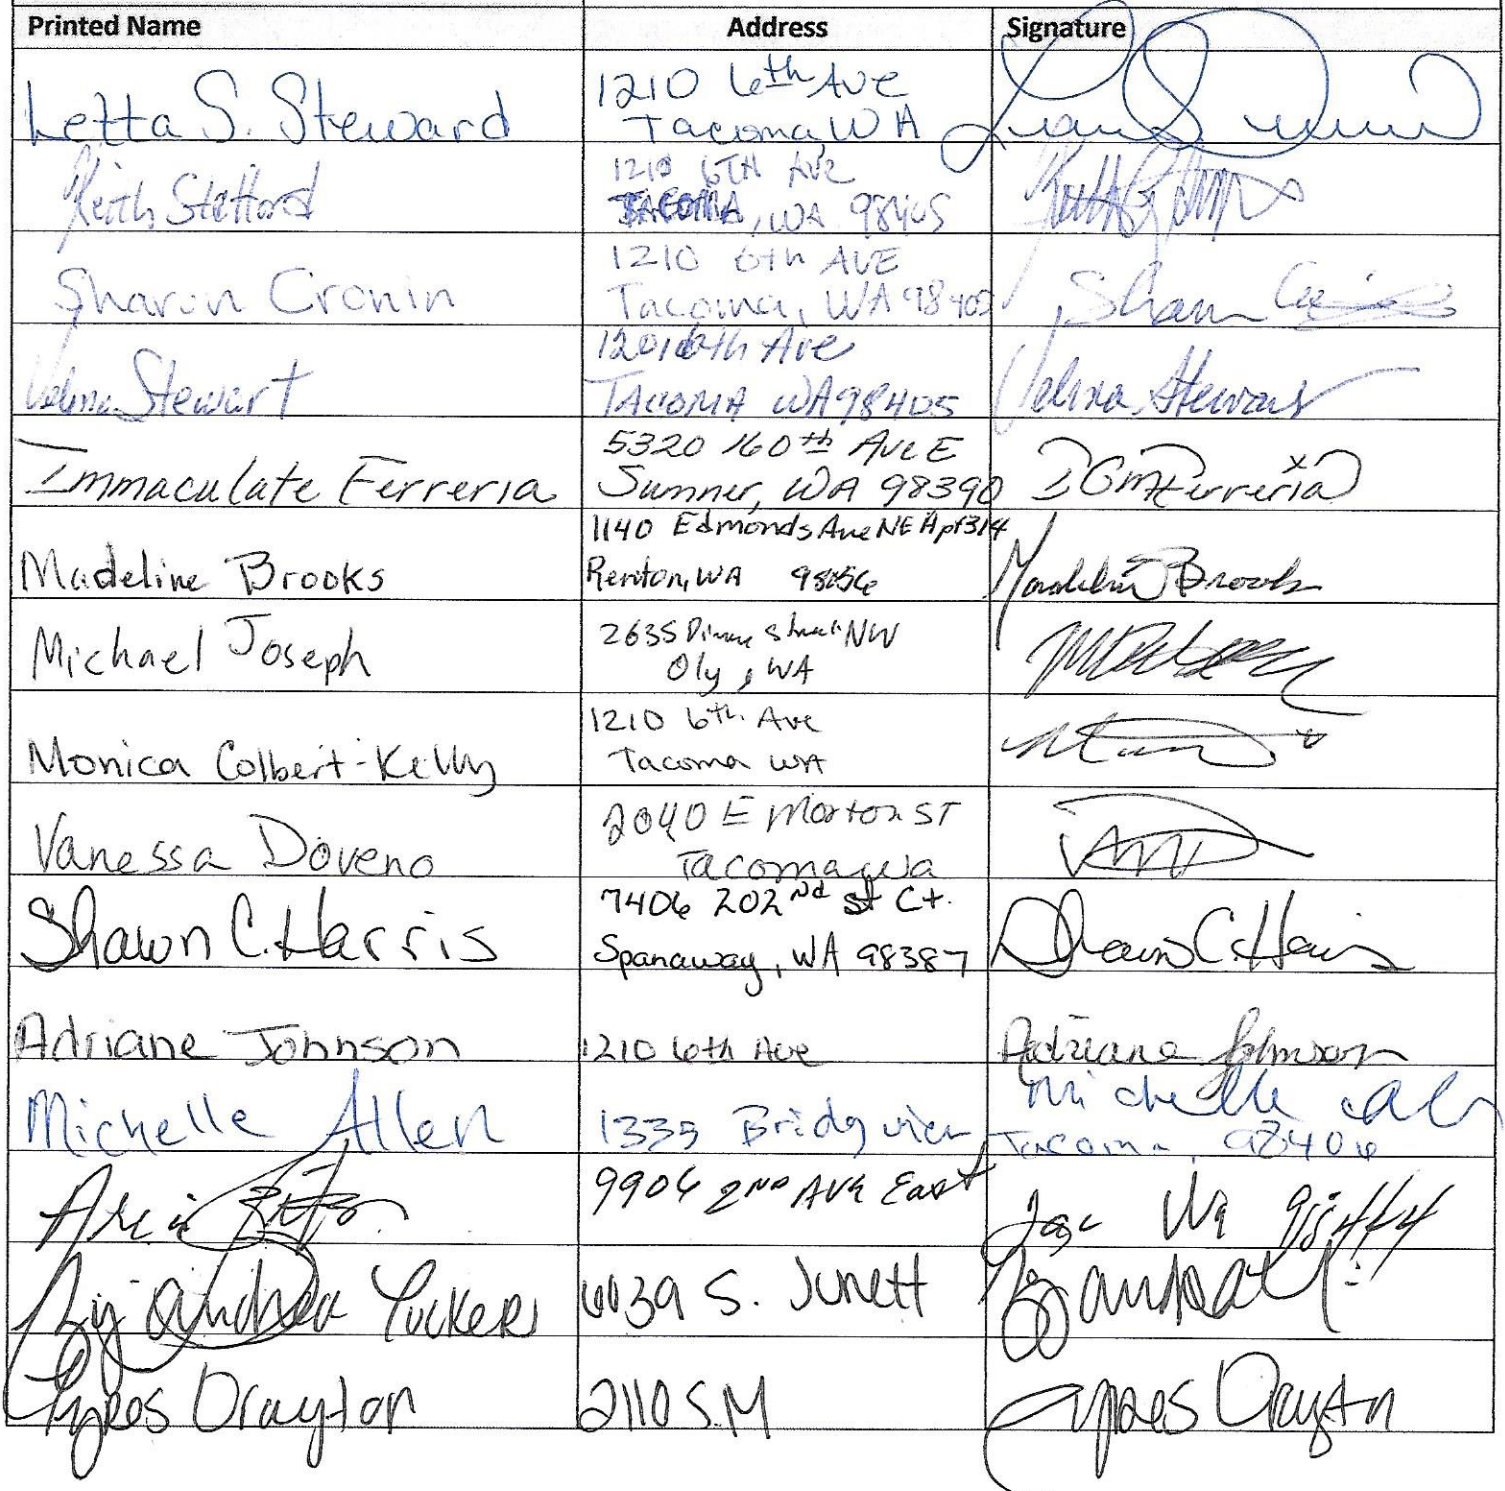 Printed Name Address Signature
Letta S. Steward 1210 6th Ave
Tacoma, WA
Keith Stafford 1210 6TH AVE
TACOMA, WA 98405
Sharon Cronin 1210 6th AVE
Tacoma, WA 98405 Sharon
Velma Stewart 6th Ave
TACOMA WA 98405 Velma Stewart
Immaculate Ferreria 5320 160th Ave E
Sumner, WA 98390 Ferreria
Madeline Brooks 1140 Edmonds Ave NE Apt 314
Renton, WA 98056 Madeline Brooks
Michael Joseph 2635 Street NW
Oly, WA
Monica Colbert-Kelly 1210 6th Ave
Tacoma WA
Vanessa Doveno 2040 E Morton ST
Tacoma, wa
Shawn C. Harris 7406 202nd st Ct.
Spanaway, WA 98387 Shawn C. Harris
Adriane Johnson 1210 6th Ave Adriane Johnson
Michelle Allen 1335 Bridgview Michelle
Tacoma, 98406
9904 2ND AVE East
Tac Wa
Andrea Tucker 6039 S. Junett
Drayton 2110 S. M Drayton